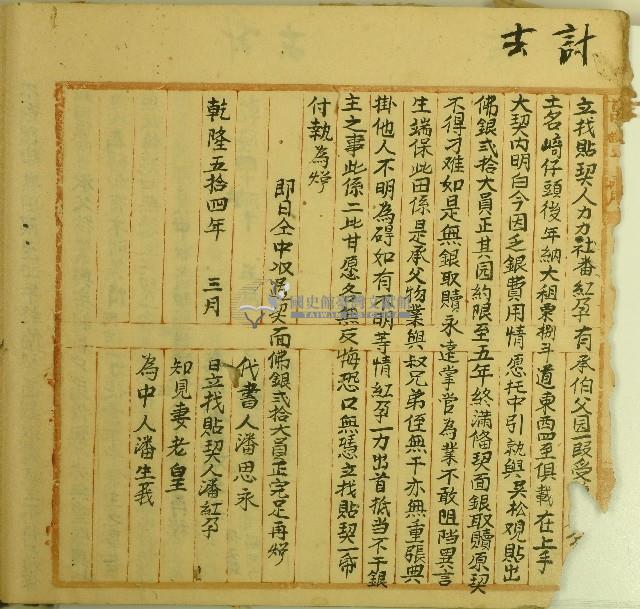 計去
立找貼契人力力社番紅孕有承伯父园一叚受
土名崎仔頭後年納大租粟捌斗道東西四至俱載在上手
大契内明白今因乏銀費用情愿托中引就與吳松观貼出
佛銀弍拾大員正其园約限至五年終滿俻契面銀取贖原契
不得刁难如是無銀取贖永遠掌管為業不敢阻挡異言
生端保此田係是承父物業與叔兄弟侄無干亦無重張典
掛他人不明為碍如有不明等情紅孕一力出首抵当不干銀
主之事此係二比甘愿各無反悔恐口無憑立找貼契一帋
付執為炤
即日仝中収過契面佛銀弍拾大員正完足再炤
代書人潘思永
乾隆五拾四年 三月 日立找貼契人潘紅孕
知見妻老皇
為中人潘生義
國史館臺灣文獻館